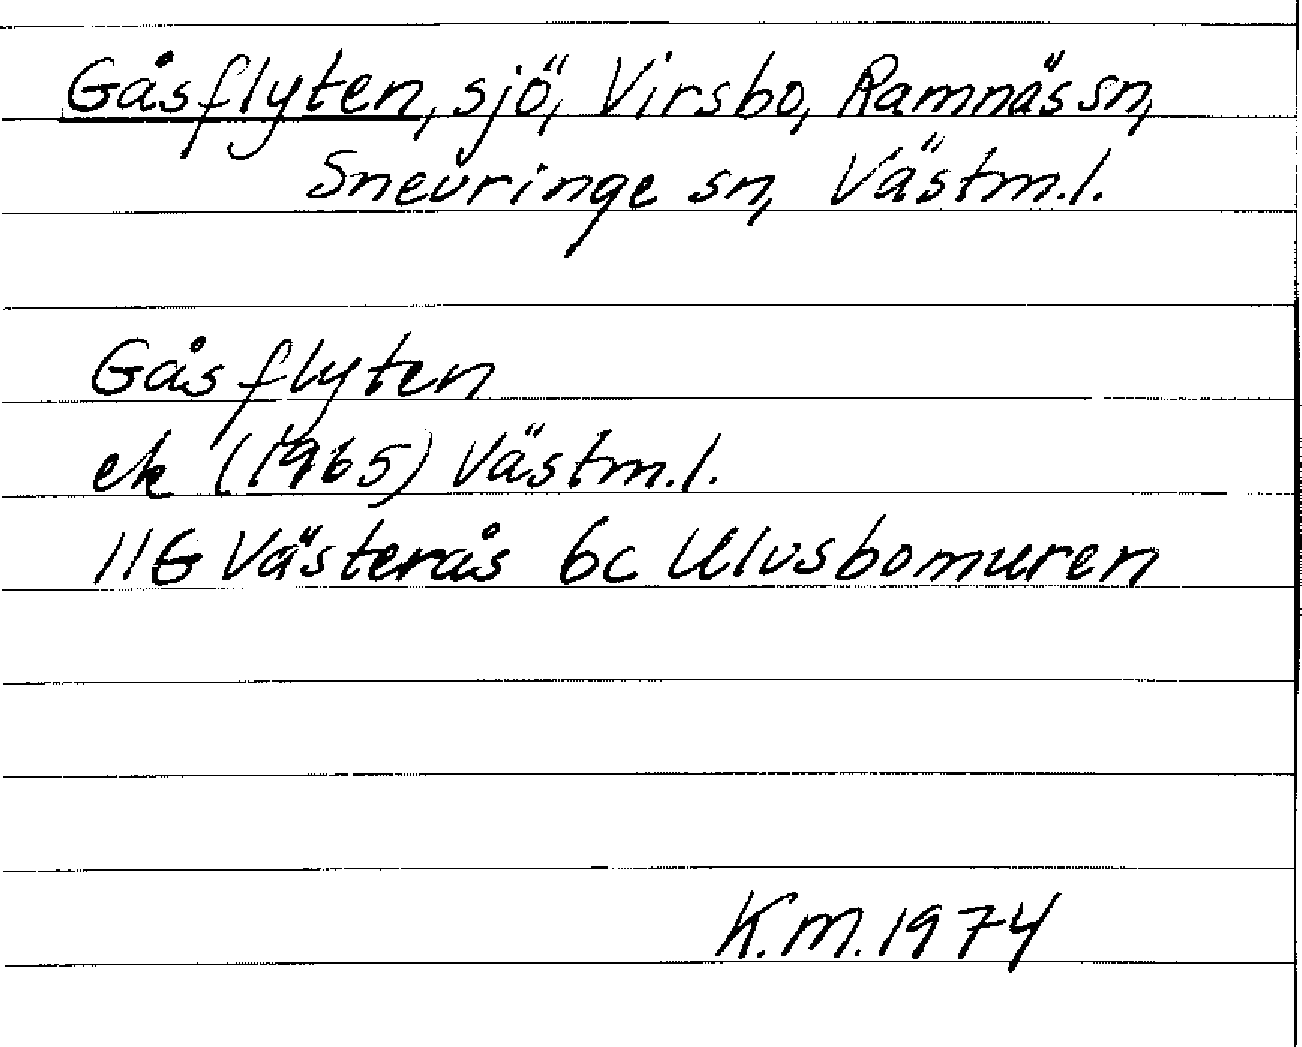 Gåsflyten, sjö, Virsbo, Ramnäs sn,
Snevringe sn, Västm.l.
Gåsflyten
ek (1965) Västm.l.
11G Västerås 6c Ulvsbomuren
K.M. 1974